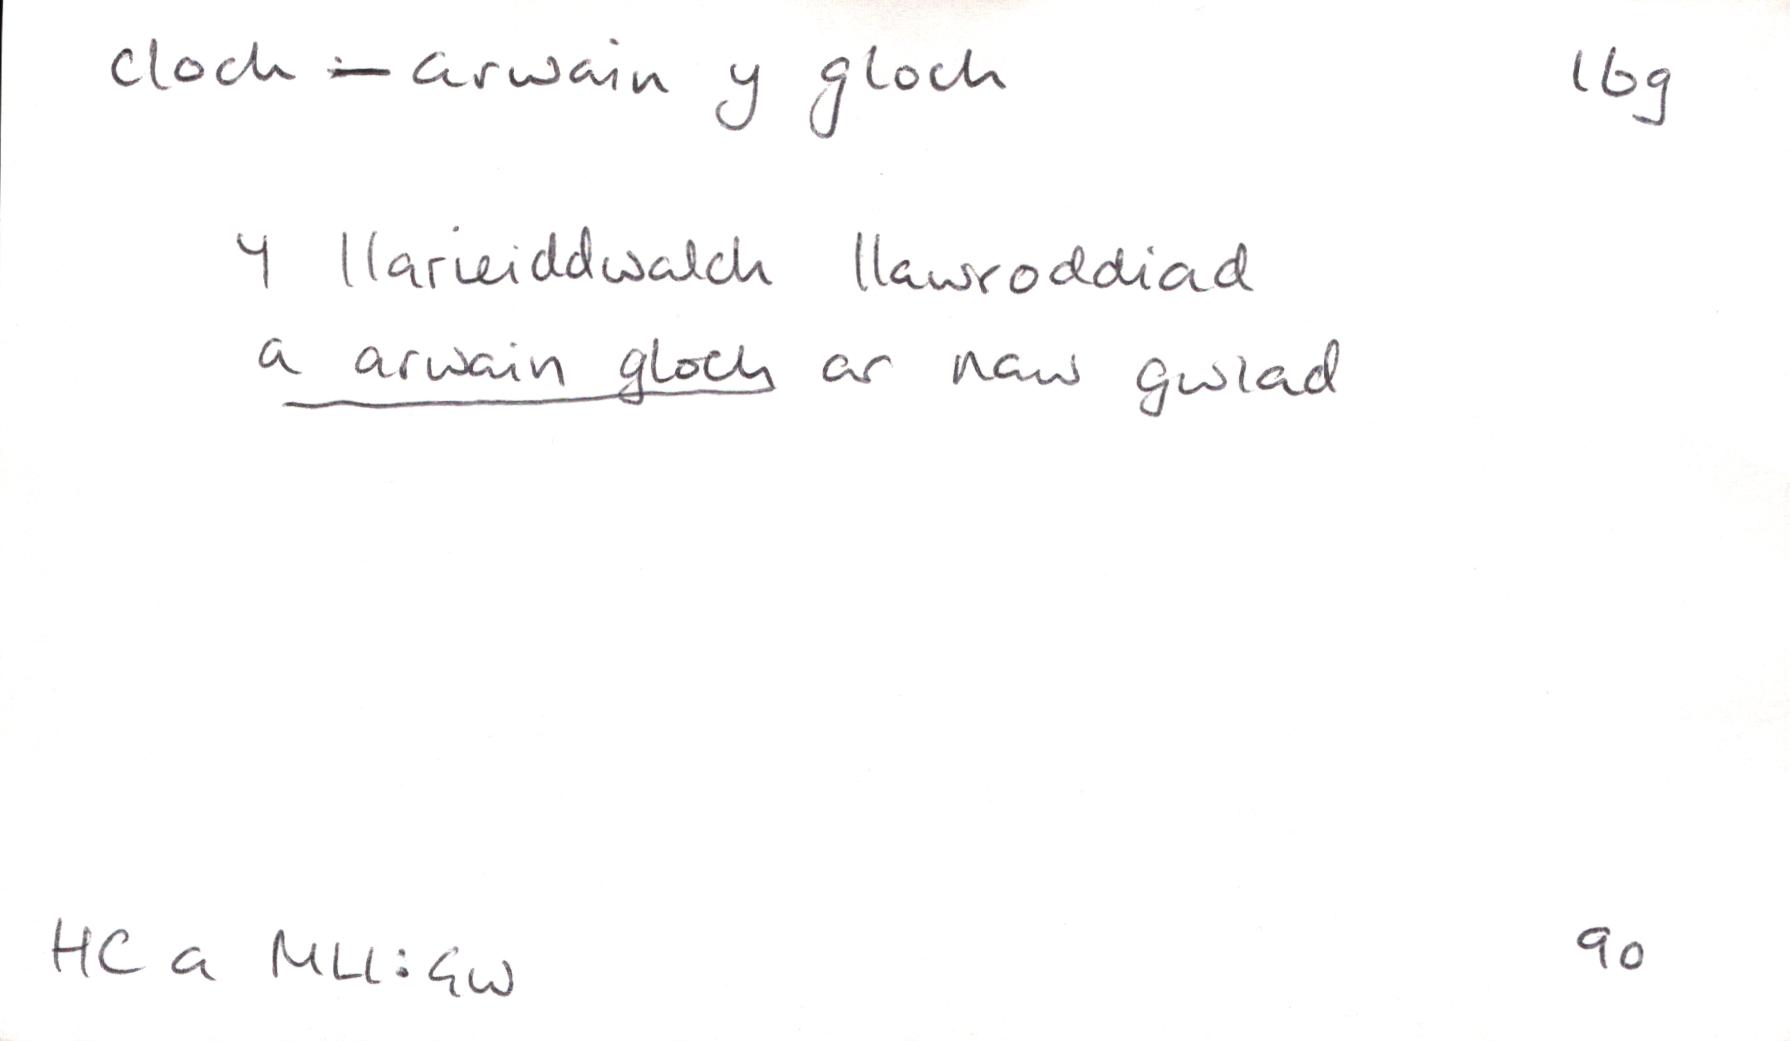 cloch – arwain y gloch 16g
Y llarieiddwalch llawroddiad
a arwain gloch ar naw gwlad
HC a MLl: GW 90